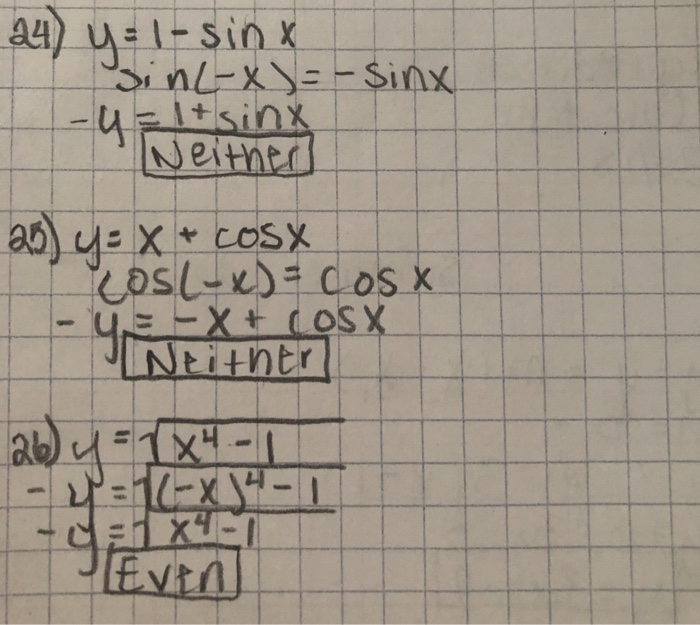 24) y = 1 - sin x
sin(-x) = - sinx
- y = 1 + sinx
Neither
25) y = x + cosx
cos(-x) = cos x
- y = -x + cosx
Neither
26) y = √x⁴ - 1
- y = √(-x)⁴ - 1
- y = √x⁴ - 1
Even